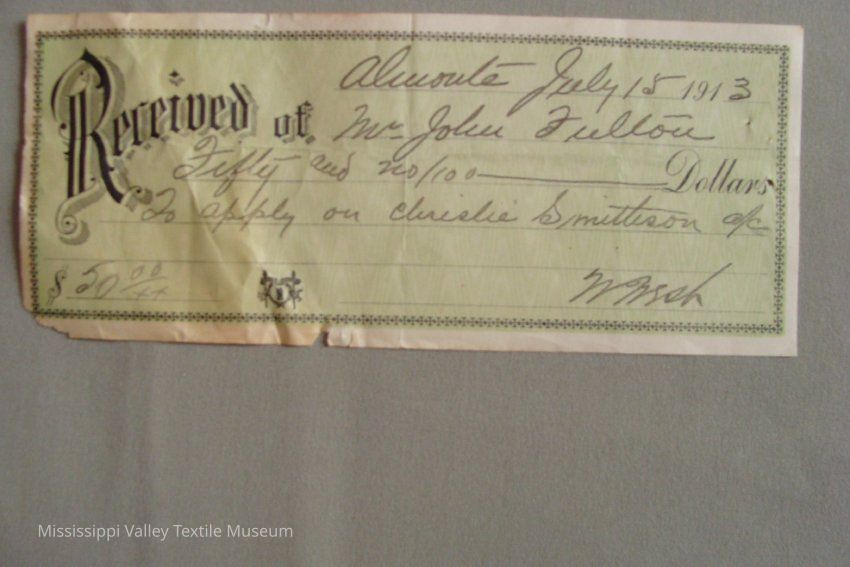 Almonte July 15 1913
Received of Mr John Fulton
Fifty and no/100 Dollars
To apply on Christie Smithson a/c
$50 00/xx
Mississippi Valley Textile Museum